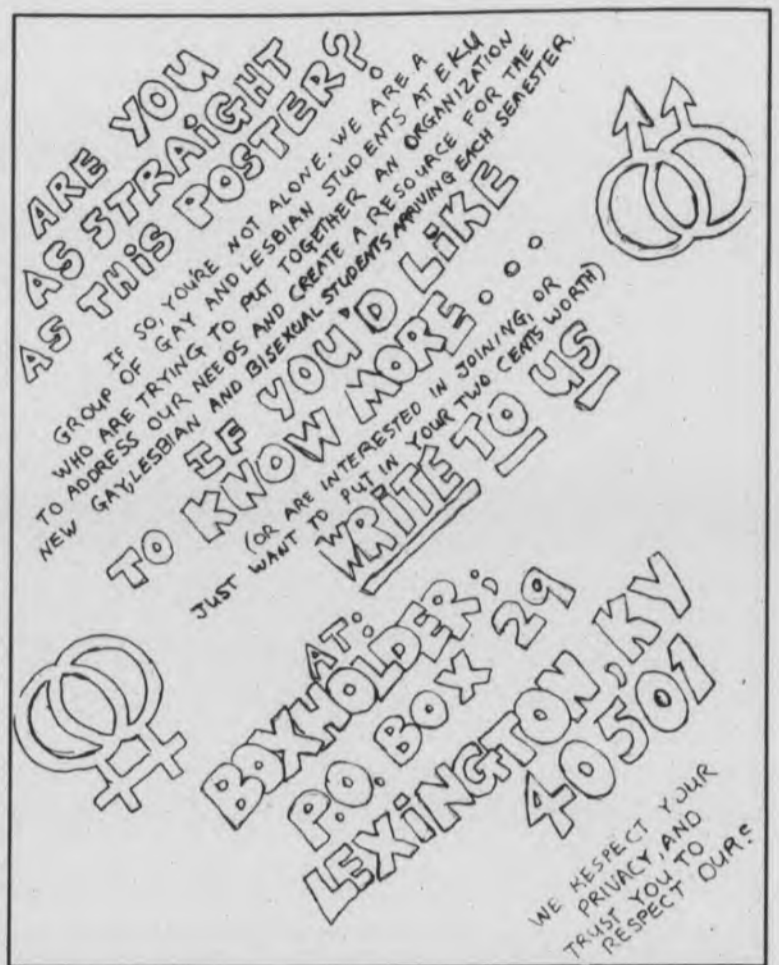 ARE YOU
AS STRAiGHT
AS THiS POSTER?
IF SO, YOU'RE NOT ALONE. WE ARE A
GROUP OF GAY AND LESBIAN STUDENTS AT EKU
WHO ARE TRYING TO PUT TOGETHER AN ORGANIZATION
TO ADDRESS OUR NEEDS AND CREATE A RESOURCE FOR THE
NEW GAY, LESBIAN AND BISEXUAL STUDENTS ARRIVING EACH SEMESTER.
IF YOU'D LiKE
TO KNOW MORE...
(OR ARE INTERESTED IN JOINING, OR
JUST WANT TO PUT IN YOUR TWO CENTS WORTH)
WRiTE TO US
AT:
BOXHOLDER;
P.O. BOX 29
LEXiNGTON, KY
40501
WE RESPECT YOUR
PRIVACY, AND
TRUST YOU TO
RESPECT OURS